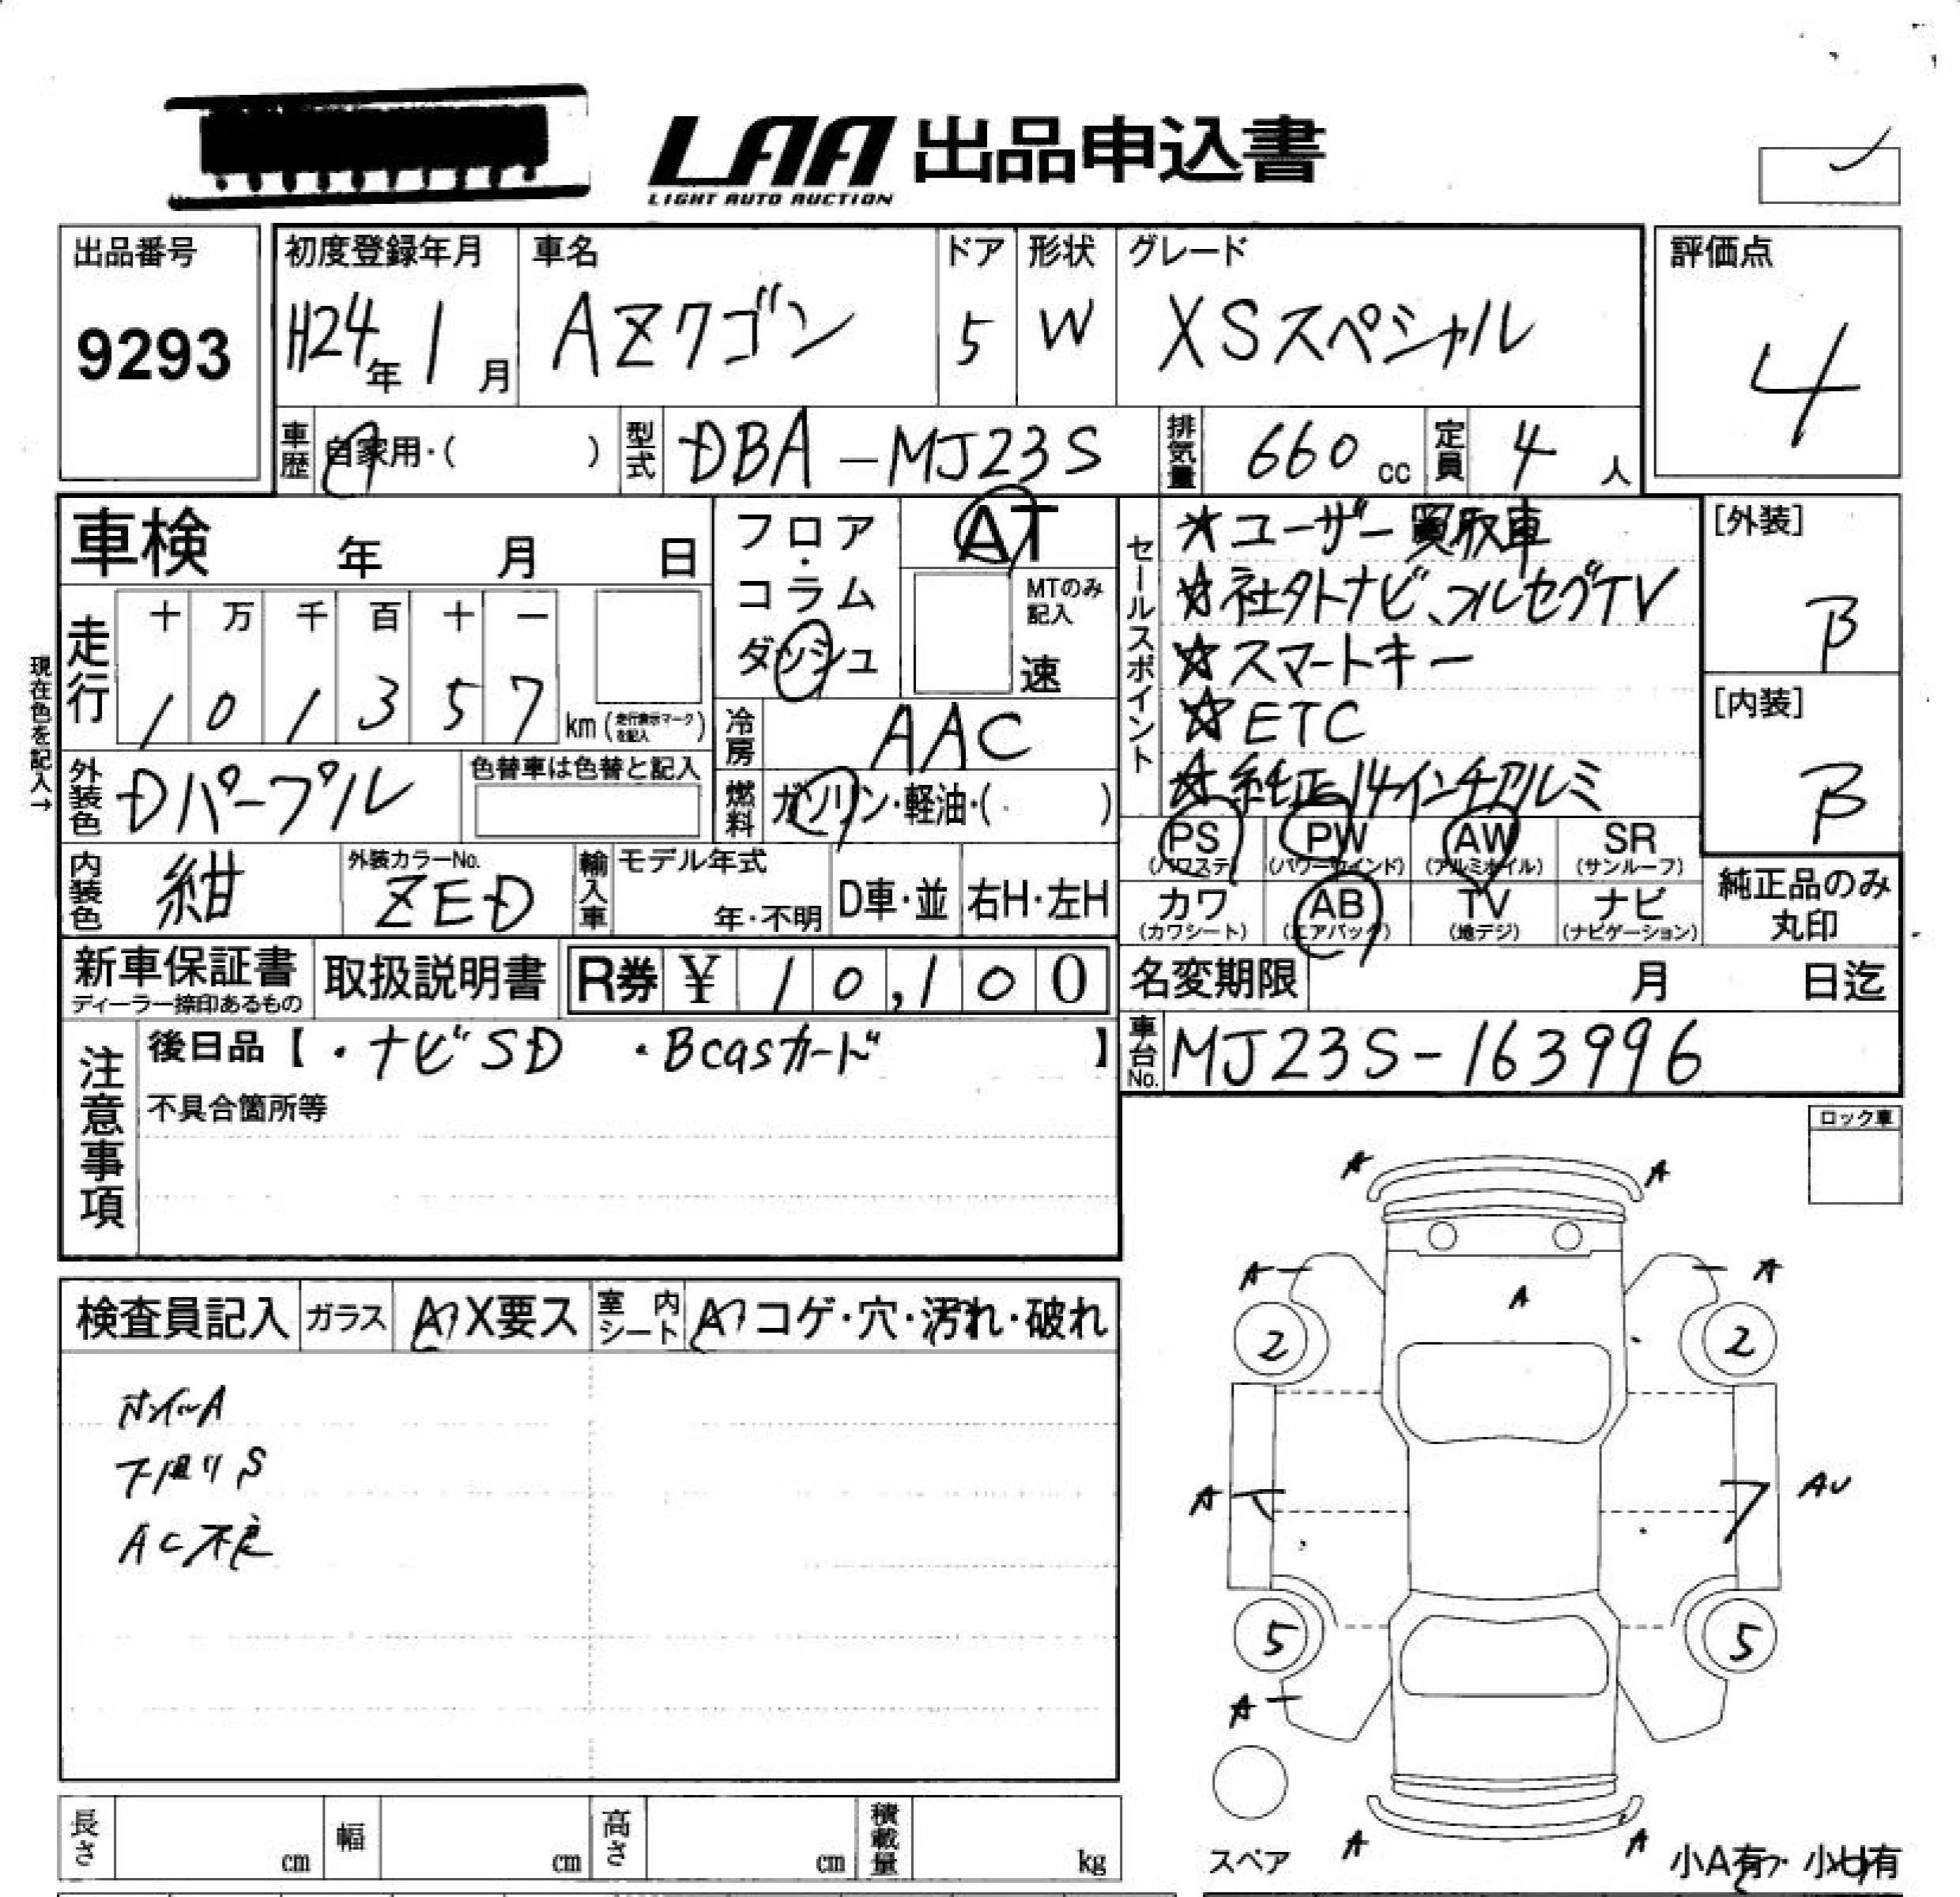 LAA 出品申込書
LIGHT AUTO AUCTION
出品番号
9293
初度登録年月
H24年 1月
車名
AZワゴン
ドア
5
形状
W
グレード
XSスペシャル
評価点
4
車歴 自家用・( )
型式 DBA-MJ23S
排気量 660 cc
定員 4 人
車検 年 月 日
フロア・コラム
ダッシュ
AT
MTのみ記入
速
セールスポイント
★ユーザー買取車
☆社外ナビ、フルセグTV
☆スマートキー
☆ETC
☆純正14インチアルミ
[外装]
B
[内装]
B
現在色を記入→
走行
十 万 千 百 十 一
1 0 1 3 5 7 km (走行表示マークを記入)
冷房 AAC
燃料 ガソリン・軽油・( )
外装色 Dパープル
色替車は色替と記入
内装色 紺
外装カラーNo.
ZED
輸入車
モデル年式
年・不明
D車・並
右H・左H
PS (パワステ)
PW (パワーウインド)
AW (アルミホイル)
SR (サンルーフ)
カワ (カワシート)
AB (エアバッグ)
TV (地デジ)
ナビ (ナビゲーション)
純正品のみ丸印
新車保証書
ディーラー捺印あるもの
取扱説明書
R券 ¥ 10,100
名変期限 月 日迄
注意事項
後日品【・ナビSD ・Bcasカード 】
不具合箇所等
車台No. MJ23S-163996
ロック車
検査員記入
ガラス A X要ス
室内シート A コゲ・穴・汚れ・破れ
ホイルA
下廻りS
AC不良
A A
A A
A
2 2
A AU
5 5
A
スペア
A A
小A有・小U有
長さ cm
幅 cm
高さ cm
積載量 kg